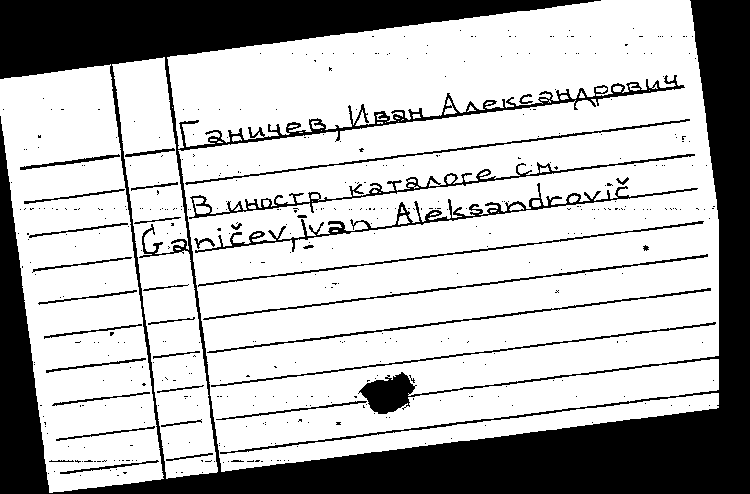 Ганичев, Иван Александрович
В иностр. каталоге см.
Ganičev, Ivan Aleksandrovič